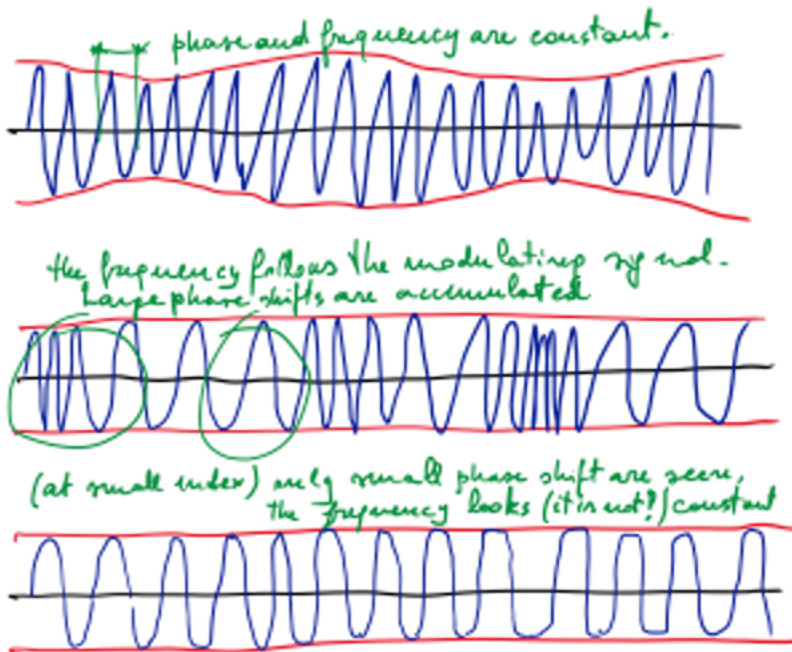 phase and frequency are constant.
the frequency follows the modulating signal.
Large phase shifts are accumulated
(at small index) only small phase shift are seen,
the frequency looks (it is not!) constant